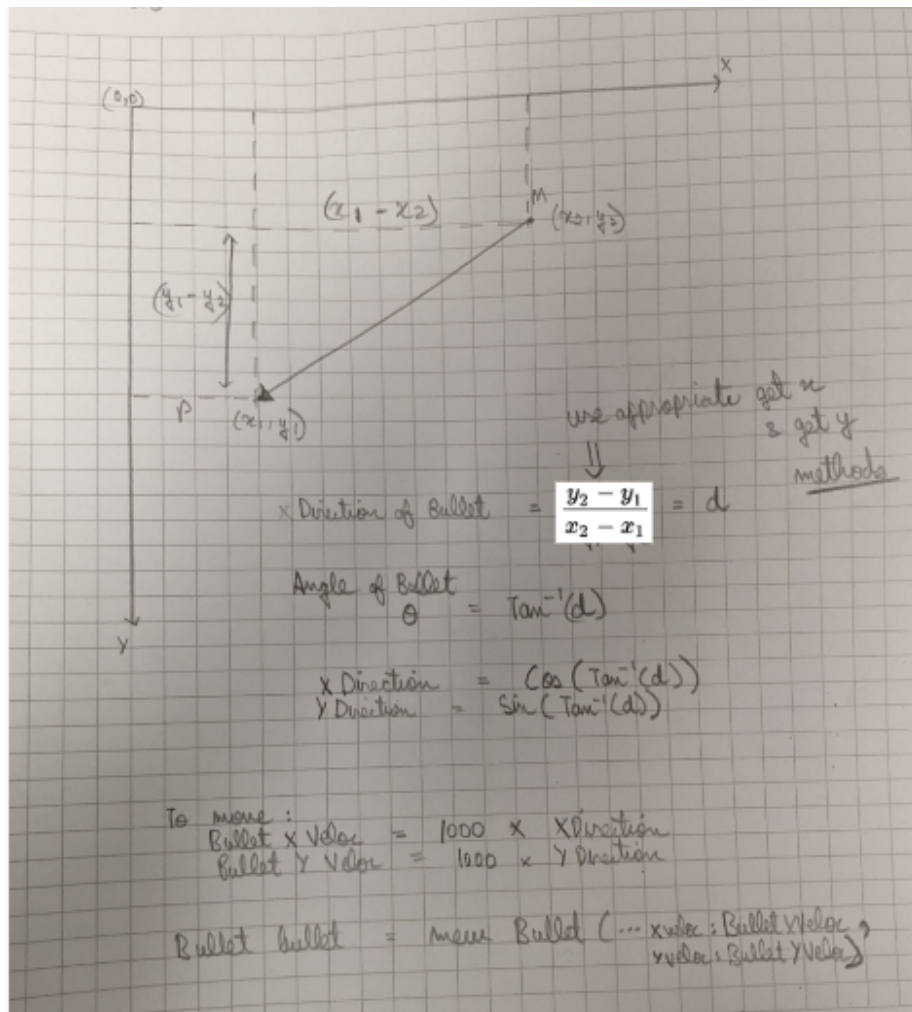 (0,0)
X
(x₁ - x₂)
M
(x₂, y₂)
(y₁ - y₂)
P
(x₁, y₁)
use appropriate get x
& get y
methods
⇓
X Direction of Bullet = \frac{y_2 - y_1}{x_2 - x_1} = d
Angle of Bullet
θ = Tan⁻¹(d)
Y
X Direction = Cos(Tan⁻¹(d))
Y Direction = Sin(Tan⁻¹(d))
To move:
Bullet X Veloc = 1000 × X Direction
Bullet Y Veloc = 1000 × Y Direction
Bullet bullet = new Bullet (... xveloc : Bullet XVeloc,
yveloc : Bullet YVeloc)